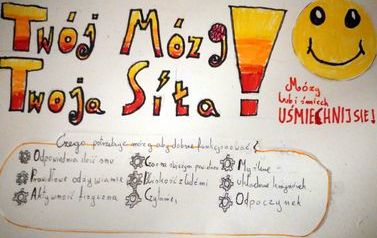 Twój Mózg
Twoja Siła!
Mózg
lubi śmiech
UŚMIECHNIJ SIĘ!
Czego potrzebuje mózg aby dobrze funkcjonować?
Odpowiednia ilość snu
Prawidłowe odżywianie
Aktywność fizyczna
Czas na świeżym powietrzu
Bliskość z ludźmi
Czytanie
Myślenie
układanie
Odpoczynek